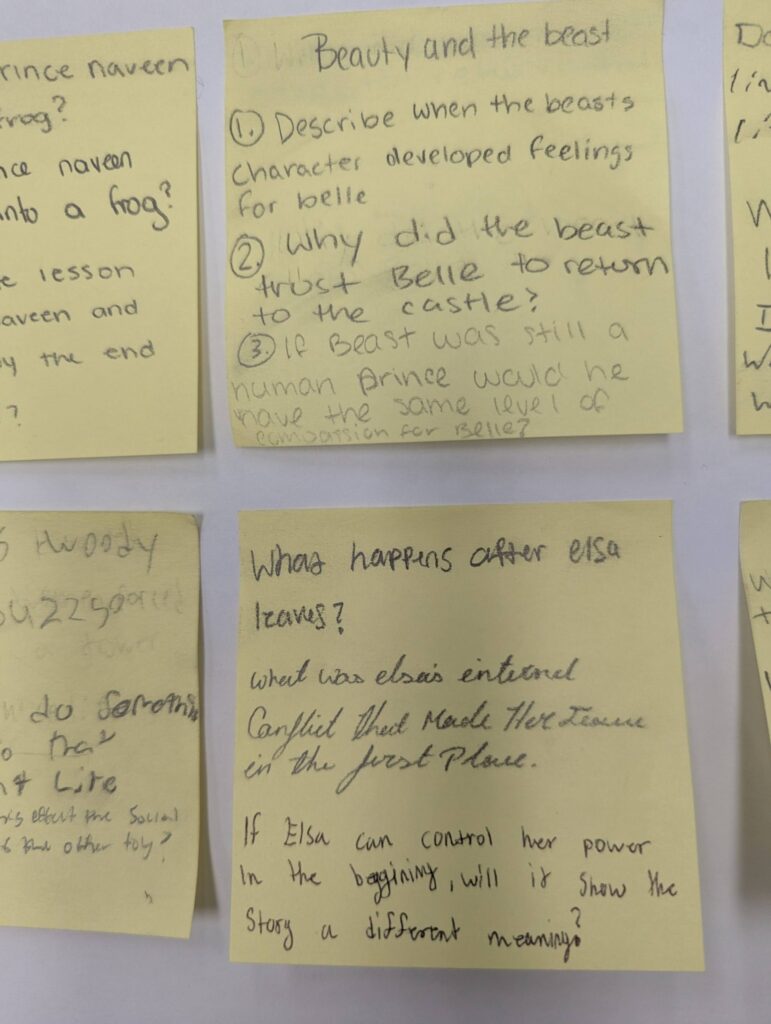 rince naveen
frog?
nce naveen
into a frog?
e lesson
aveen and
by the end
?
Beauty and the beast
1. Describe when the beasts
character developed feelings
for belle
2. Why did the beast
trust Belle to return
to the castle?
3. If Beast was still a
human prince would he
have the same level of
compassion for Belle?
Woody
do somethi
Life
effect the social
other toy?
What happens after elsa
leaves?
what was elsa's internal
Conflict that Made Her Leave
in the first Place.
If Elsa can control her power
In the beggining, will it show the
Story a different meaning?
Do